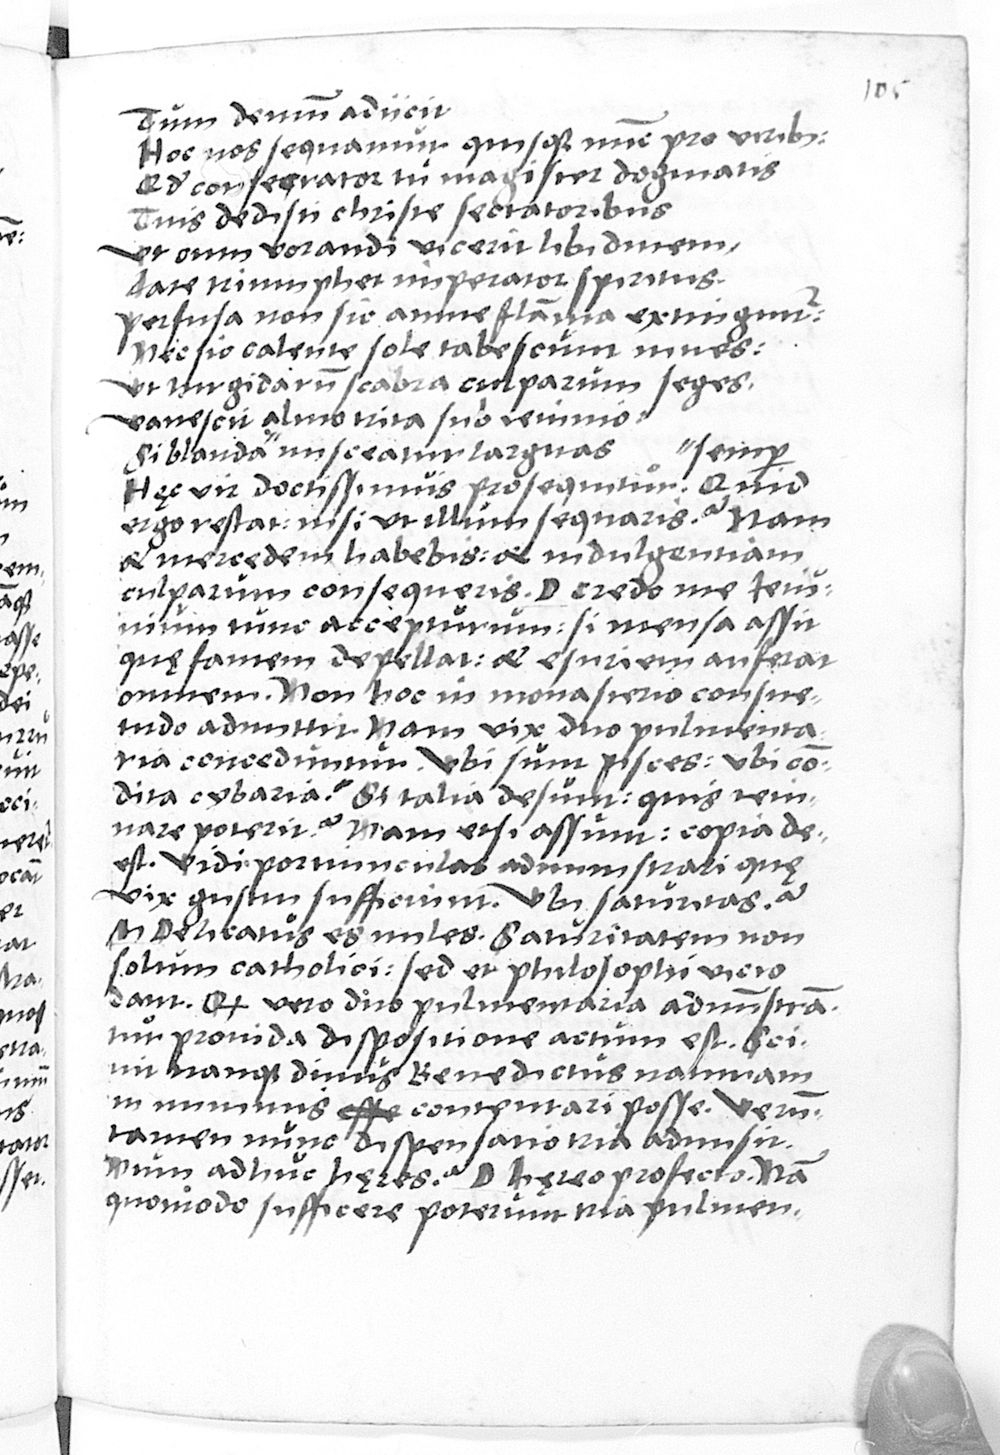 105
Tum demū adiicit
Hoc nos sequamur quisqꝫ nūc pro virib9:
Qd consecrator tu magister dogmatis
Tuis dedisti christe sectatoribus
vt cum vorandi vicerit libidinem,
Late triumphet imperator spiritus.
perfusa non sic amne flāma extinguit᷑:
Nec sic calente sole tabescunt niues:
vt turgidarū scabra culparum seges.
vanescit almo trita sub ieiunio:
Si blanda " misceatur largitas " semꝑ
Hęc vir doctissimus prosequitur. Quid
ergo restat: nisi vt illum sequaris.? Nam
& mercedem habebis: & indulgentiam
culparum consequeris. D credo me ieiu-
nium tunc accepturum: si mensa assit
quę famem depellat: & esuriem auferat
omnem. Non hoc in monasterio consue-
tudo admittit. Nam vix duo pulmenta-
ria conceduntur. Vbi sunt pisces: vbi cō-
dita cybaria.? Si talia desunt: quis ieiu-
nare poterit.? Nam etsi assunt: copia de-
est. Vidi portiunculas administrari quę
vix gustui sufficiunt. Vbi saturitas.?
M Delicatus es miles. Saturitatem non
solum catholici: sed et philosophi vicio
dant. Qꝫ vero duo pulmentaria adminīstrā-
tur prouida dispositione actum est. Sci-
uit nanqꝫ diuus Benedictus naturam
in minimis esse contentari posse. Verū-
tamen nunc dispensatio tria admisit.
Num adhuc hęres.? D hęreo profecto. Nā
quomodo sufficere poterunt tria pulmen-